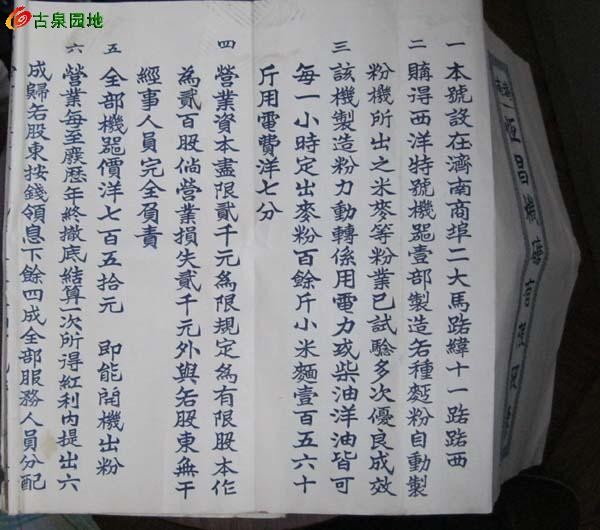 古泉园地
一 本號設在濟南商埠二大馬路緯十一路路西
二 購得西洋特號機器壹部製造各種麵粉自動製
粉機所出之米麥等粉業已試驗多次優良成效
三 該機製造粉力動轉係用電力或柴油洋油皆可
每一小時定出麥粉百餘斤小米麵壹百五六十
斤用電費洋七分
四 營業資本盡限貳千元為限規定為有限股本作
為貳百股倘營業損失貳千元外與各股東無干
經事人員完全負責
五 全部機器價洋七百五拾元 即能開機出粉
六 營業每至廢歷年終撤底結算一次所得紅利內提出六
成歸各股東按錢領息下餘四成全部服務人員分配
恒昌機